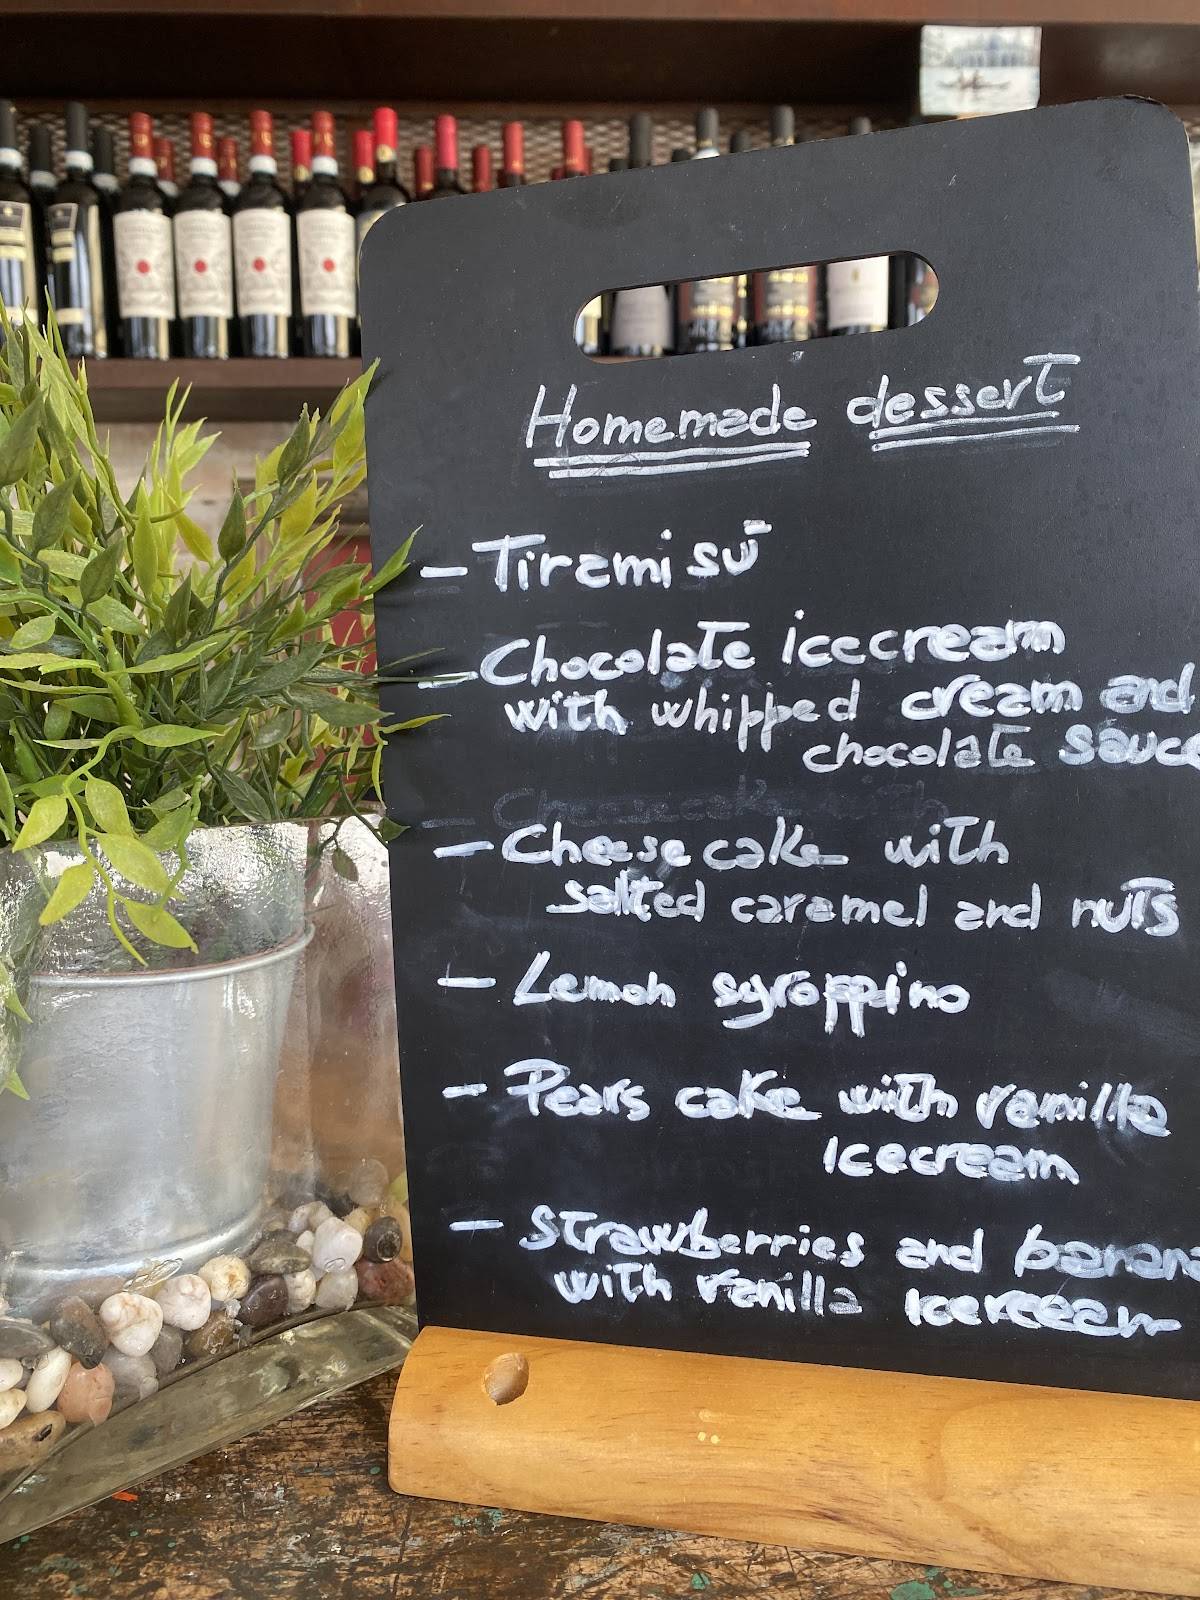 Homemade dessert
- Tiramisū
- Chocolate icecream
with whipped cream and
chocolate sauce
Cheesecake with
- Cheesecake with
salted caramel and nuts
- Lemon syroppino
- Pears cake with vanilla
icecream
- Strawberries and banana
with vanilla Icercream